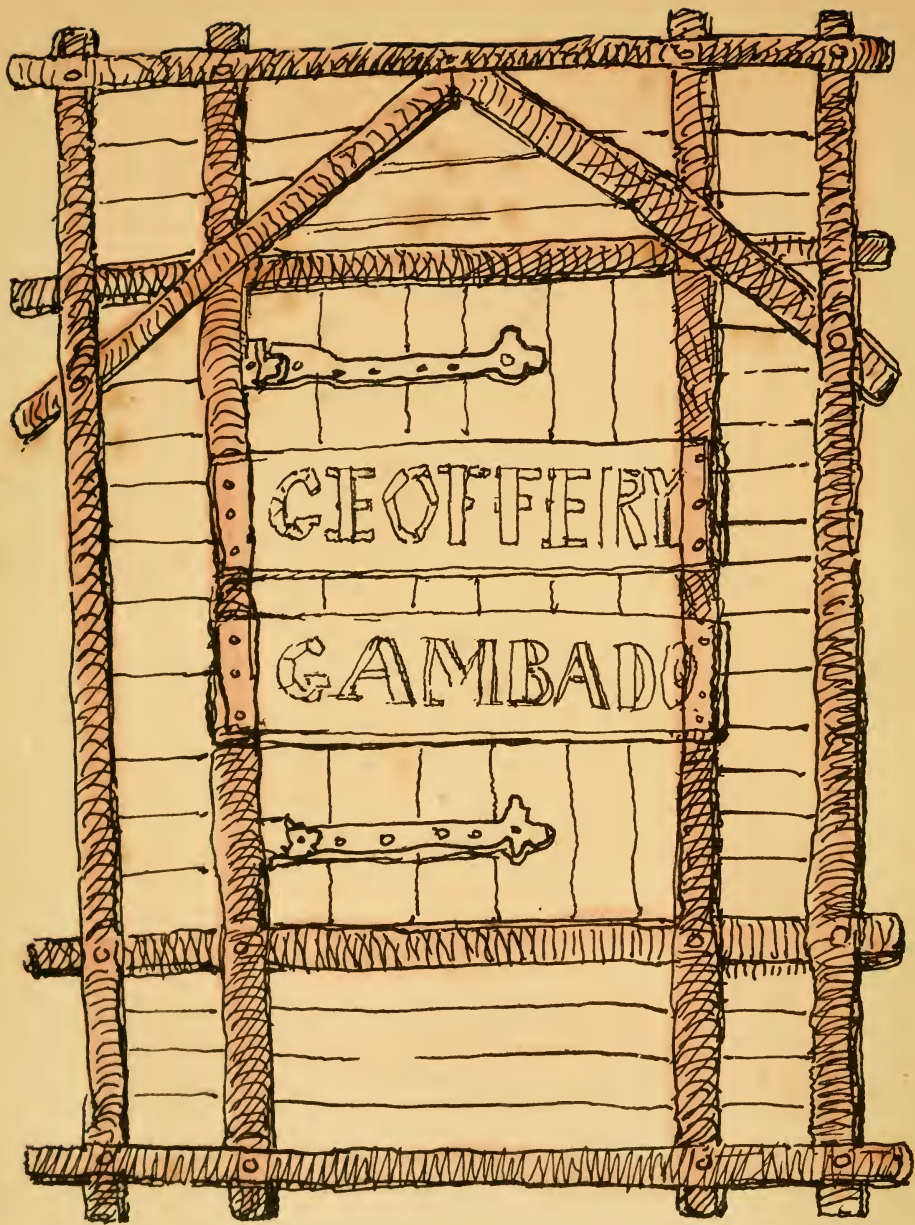 GEOFFERY
GAMBADO